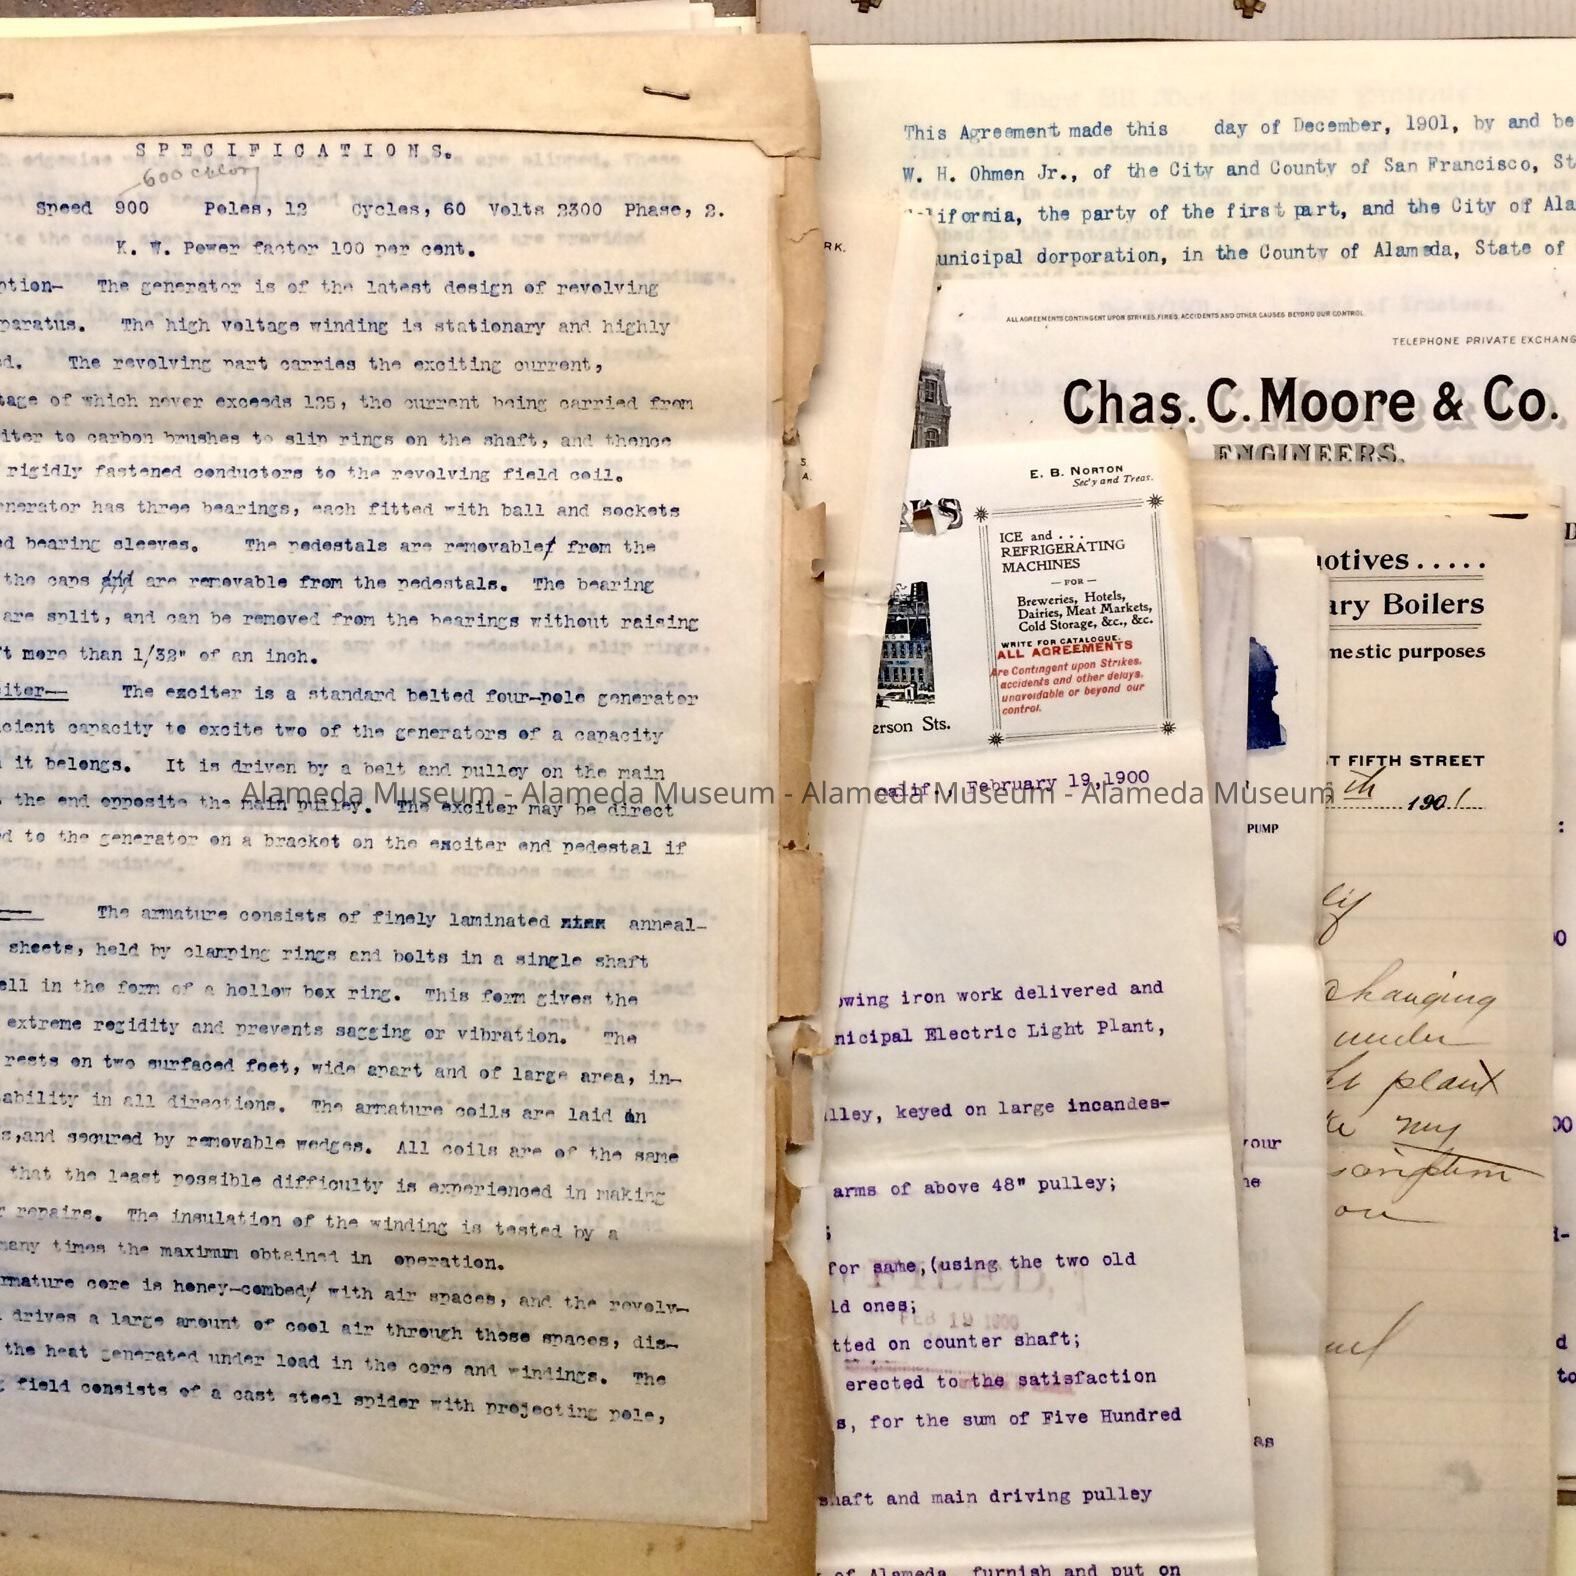 SPECIFICATIONS.
Speed 900 Poles, 12 Cycles, 60 Volts 2300 Phase, 2.
K. W. Power factor 100 per cent.
ption- The generator is of the latest design of revolving
paratus. The high voltage winding is stationary and highly
d. The revolving part carries the exciting current,
tage of which never exceeds 125, the current being carried from
iter to carbon brushes to slip rings on the shaft, and thence
rigidly fastened conductors to the revolving field coil.
nerator has three bearings, each fitted with ball and sockets
d bearing sleeves. The pedestals are removable from the
the caps and are removable from the pedestals. The bearing
are split, and can be removed from the bearings without raising
t more than 1/32" of an inch.
citer— The exciter is a standard belted four-pole generator
cient capacity to excite two of the generators of a capacity
it belongs. It is driven by a belt and pulley on the main
the end opposite the main pulley. The exciter may be direct
d to the generator on a bracket on the exciter end pedestal if
The armature consists of finely laminated anneal-
sheets, held by clamping rings and bolts in a single shaft
ell in the form of a hollow box ring. This form gives the
extreme regidity and prevents sagging or vibration. The
rests on two surfaced feet, wide apart and of large area, in-
ability in all directions. The armature coils are laid in
s,and secured by removable wedges. All coils are of the same
that the least possible difficulty is experienced in making
r repairs. The insulation of the winding is tested by a
many times the maximum obtained in operation.
rmature core is honey-combed with air spaces, and the revolv-
drives a large amount of cool air through these spaces, dis-
the heat generated under load in the core and windings. The
g field consists of a cast steel spider with projecting pole,
This Agreement made this day of December, 1901, by and be
W. H. Ohmen Jr., of the City and County of San Francisco, St
lifornia, the party of the first part, and the City of Ala
unicipal dorporation, in the County of Alameda, State of
RK.
ALL AGREEMENTS CONTINGENT UPON STRIKES, FIRES, ACCIDENTS AND OTHER CAUSES BEYOND OUR CONTROL
TELEPHONE PRIVATE EXCHANG
Chas. C. Moore & Co.
ENGINEERS.
S.
A.
E. B. NORTON
Sec'y and Treas.
RKS
ICE and . . .
REFRIGERATING
MACHINES
— FOR —
Breweries, Hotels,
Dairies, Meat Markets,
Cold Storage, &c., &c.
WRITE FOR CATALOGUE.
ALL AGREEMENTS
Are Contingent upon Strikes,
accidents and other delays,
unavoidable or beyond our
control.
erson Sts.
Calif., February 19,1900
owing iron work delivered and
nicipal Electric Light Plant,
lley, keyed on large incandes-
arms of above 48" pulley;
for same,(using the two old
ld ones;
FILED,
FEB 19 1900
tted on counter shaft;
erected to the satisfaction
s, for the sum of Five Hundred
shaft and main driving pulley
of Alameda, furnish and put on
PUMP
your
he
as
otives.....
ary Boilers
mestic purposes
T FIFTH STREET
th 1901
changing
under
plant
my
on
:
00
00
d
to
Alameda Museum - Alameda Museum - Alameda Museum - Alameda Museum